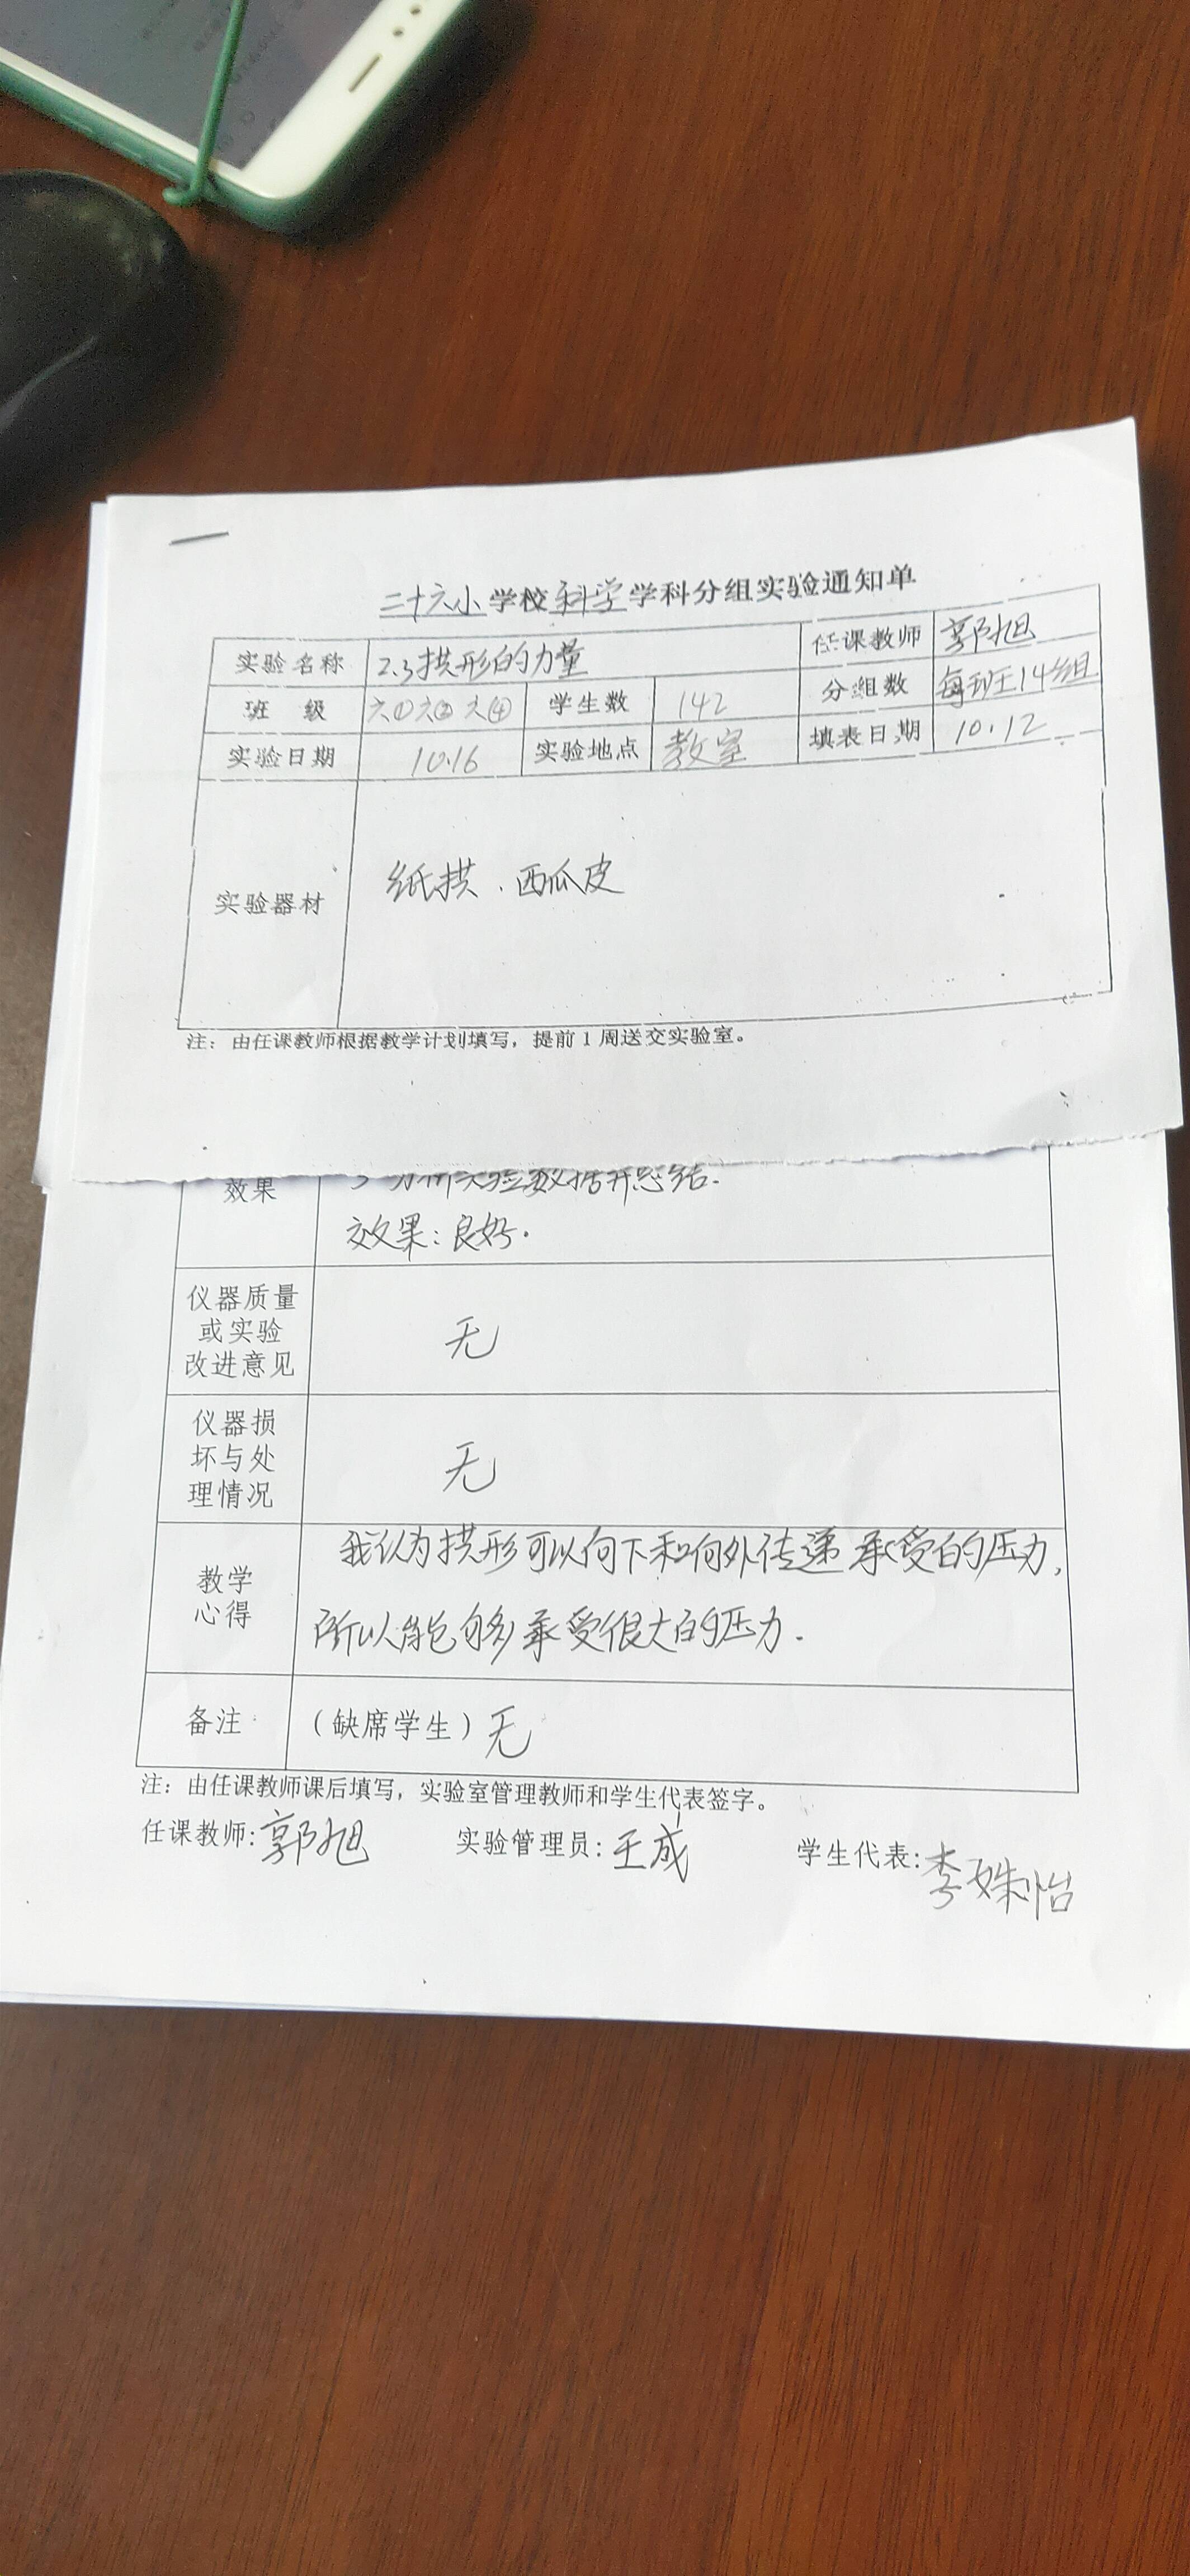 二十六小学校科学学科分组实验通知单
实验名称 2.3拱形的力量 任课教师 郭旭
班 级 六① 六② 六④ 学生数 142 分组数 每班14组
实验日期 10.16 实验地点 教室 填表日期 10.12
实验器材 纸拱、西瓜皮
注：由任课教师根据教学计划填写，提前1周送交实验室。
效果 3 分析实验数据并总结.
效果：良好.
仪器质量
或实验
改进意见
无
仪器损
坏与处
理情况
无
教学
心得
我认为拱形可以向下和向外传递承受的压力，
所以能够承受很大的压力.
备注 （缺席学生）无
注：由任课教师课后填写，实验室管理教师和学生代表签字。
任课教师：郭旭 实验管理员：王成 学生代表：李姝怡